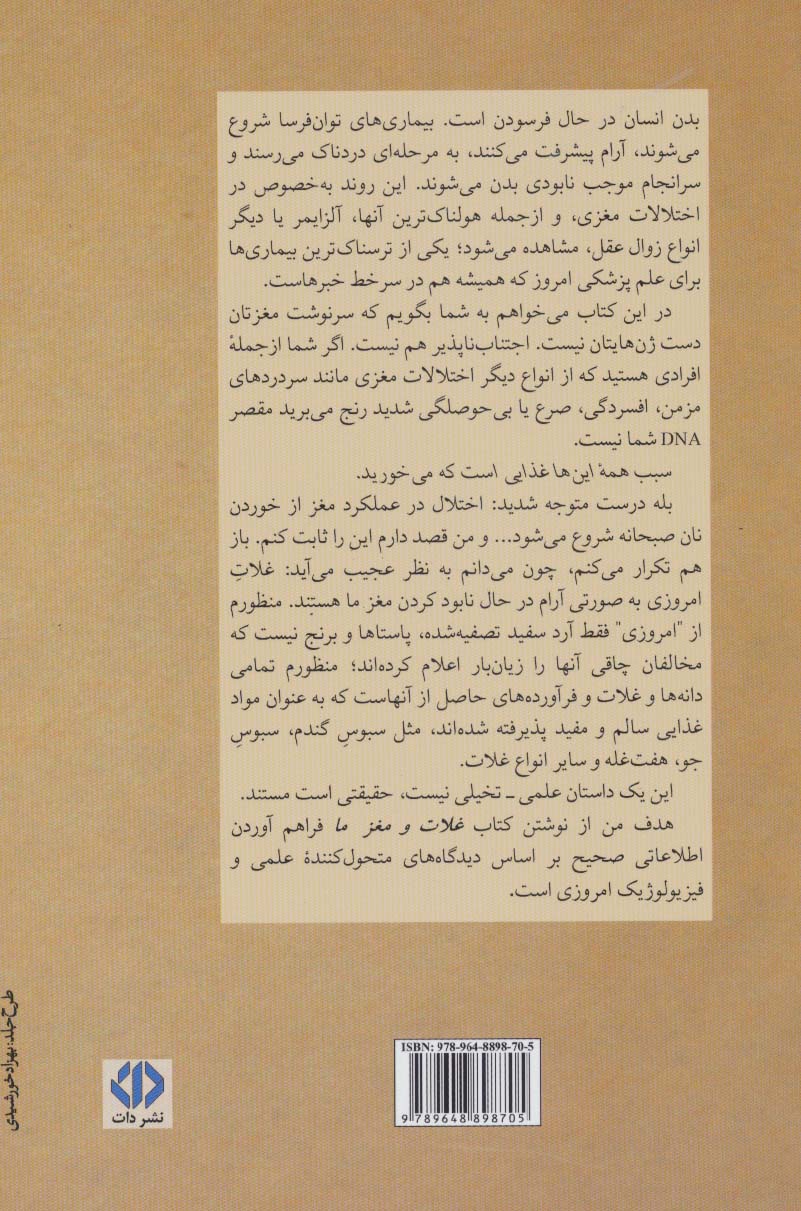 بدن انسان در حال فرسودن است. بیماری‌های توان‌فرسا شروع
می‌شوند، آرام پیشرفت می‌کنند، به مرحله‌ای دردناک می‌رسند و
سرانجام موجب نابودی بدن می‌شوند. این روند به‌خصوص در
اختلالات مغزی، و ازجمله هولناک‌ترین آنها، آلزایمر یا دیگر
انواع زوال عقل، مشاهده می‌شود؛ یکی از ترسناک‌ترین بیماری‌ها
برای علم پزشکی امروز که همیشه هم در سرخط خبرهاست.
در این کتاب می‌خواهم به شما بگویم که سرنوشت مغزتان
دست ژن‌هایتان نیست. اجتناب‌ناپذیر هم نیست. اگر شما ازجملهٔ
افرادی هستید که از انواع دیگر اختلالات مغزی مانند سردردهای
مزمن، افسردگی، صرع یا بی‌حوصلگی شدید رنج می‌برید مقصر
DNA شما نیست.
سبب همهٔ این‌ها غذایی است که می‌خورید.
بله درست متوجه شدید: اختلال در عملکرد مغز از خوردن
نان صبحانه شروع می‌شود... و من قصد دارم این را ثابت کنم. باز
هم تکرار می‌کنم، چون می‌دانم به نظر عجیب می‌آید: غلاتِ
امروزی به صورتی آرام در حال نابود کردن مغز ما هستند. منظورم
از "امروزی" فقط آرد سفید تصفیه‌شده، پاستاها و برنج نیست که
مخالفان چاقی آنها را زیان‌بار اعلام کرده‌اند؛ منظورم تمامی
دانه‌ها و غلات و فرآورده‌های حاصل از آنهاست که به عنوان مواد
غذایی سالم و مفید پذیرفته شده‌اند، مثل سبوسِ گندم، سبوسِ
جو، هفت‌غله و سایر انواع غلات.
این یک داستان علمی ـ تخیلی نیست، حقیقتی است مستند.
هدف من از نوشتن کتاب غلات و مغز ما فراهم آوردن
اطلاعاتی صحیح بر اساس دیدگاه‌های متحول‌کنندهٔ علمی و
فیزیولوژیک امروزی است.
طرح جلد: بهزاد خورشیدی
ISBN: 978-964-8898-70-5
9 789648 898705
دات
نشر دات